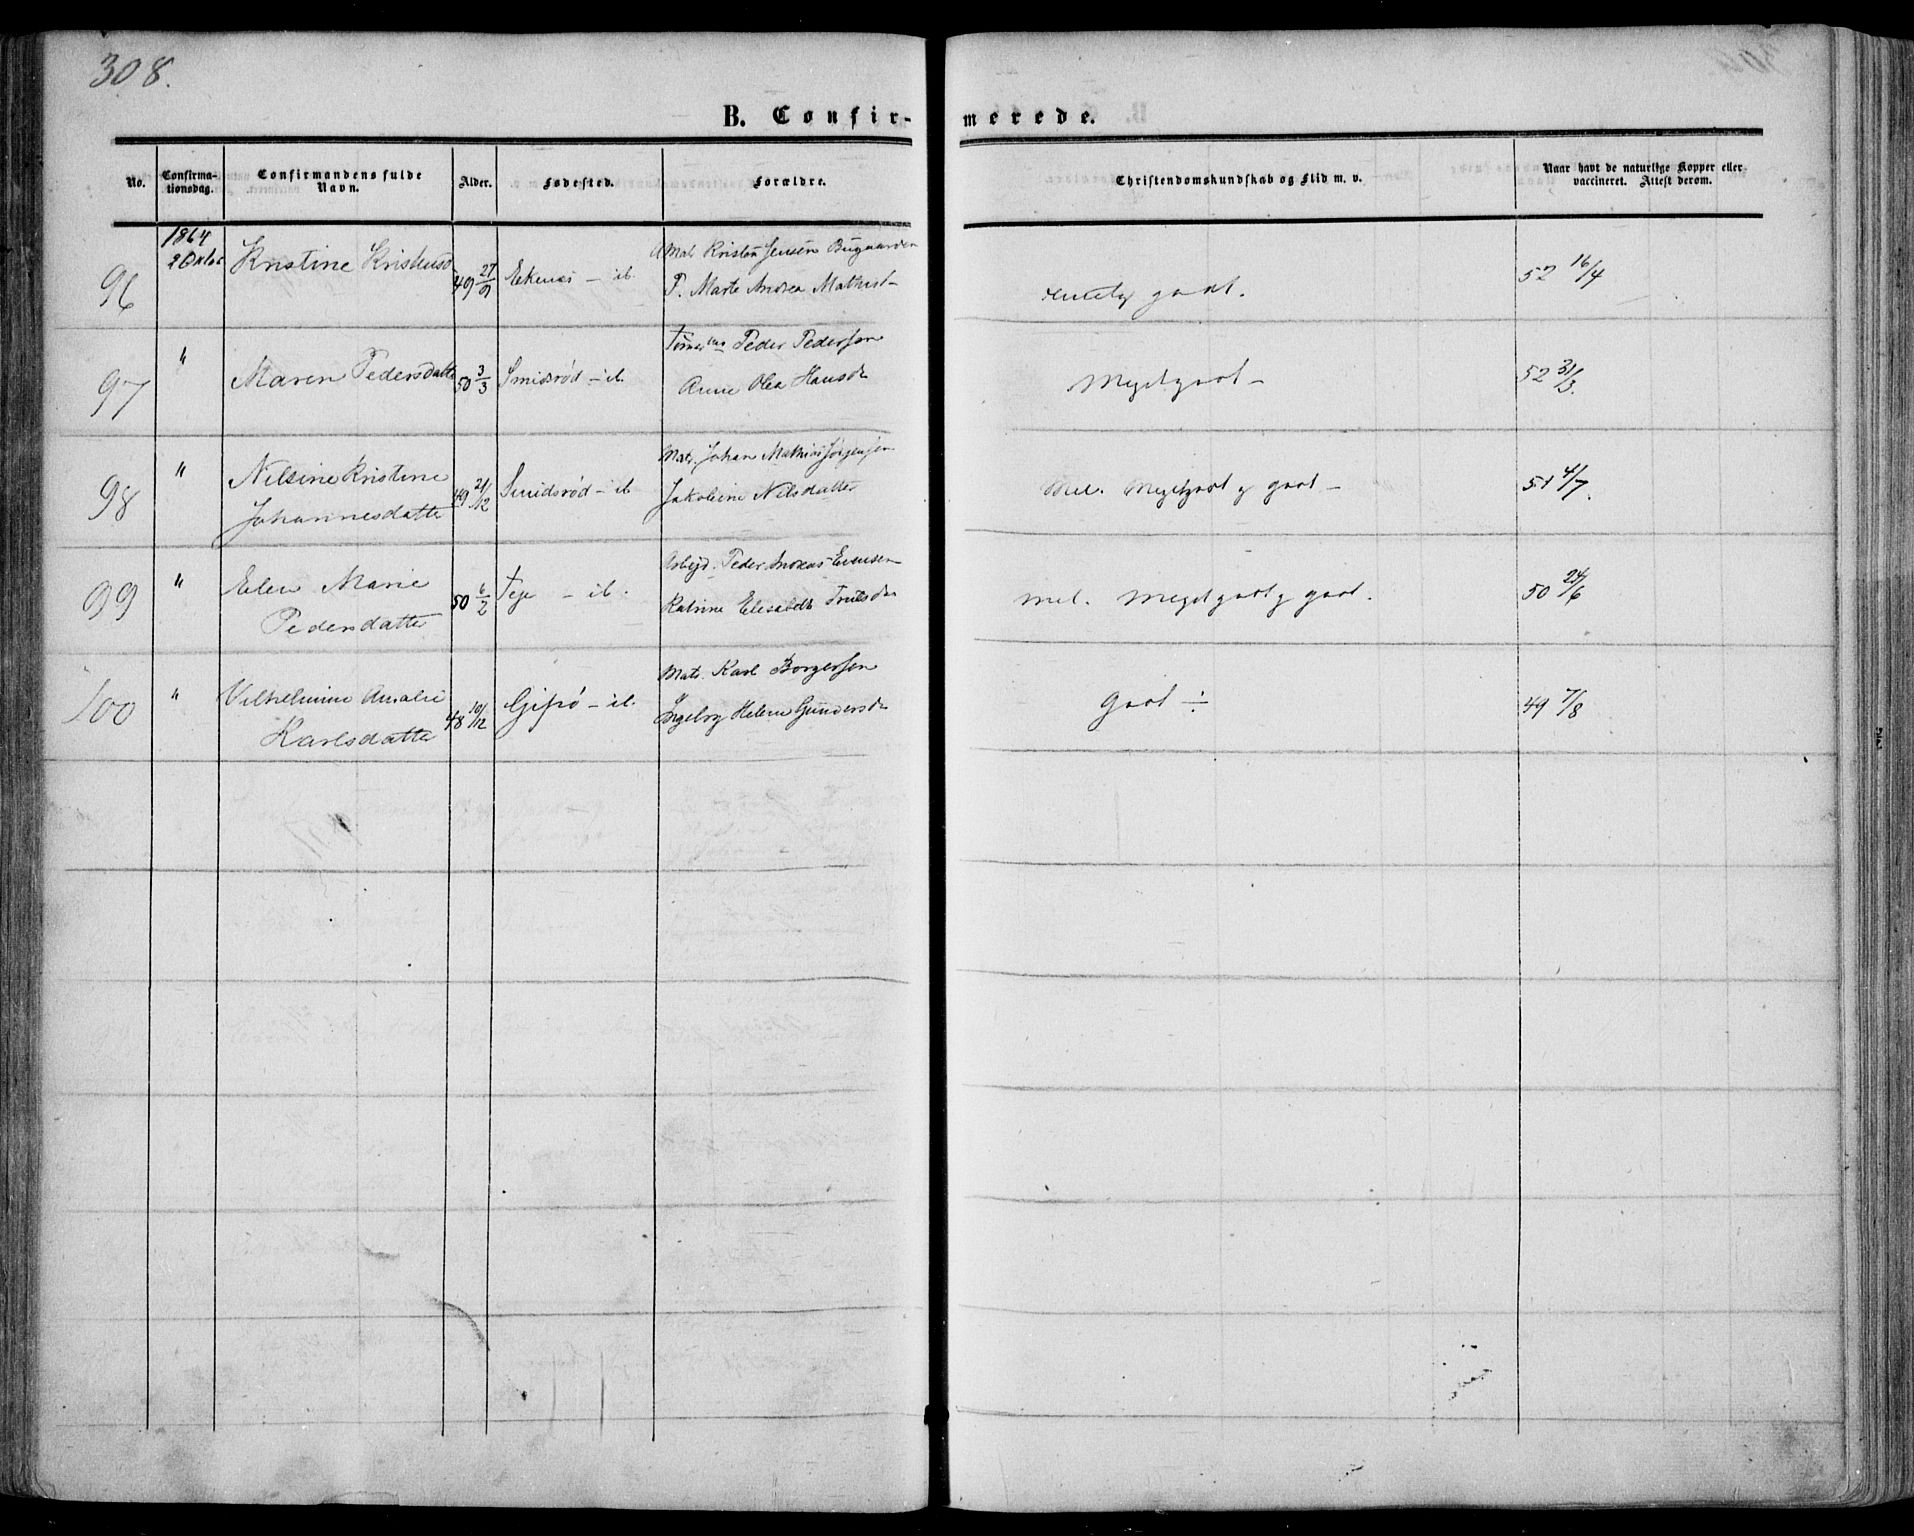 308.
B. Confir-
merede.
No.
Confirma-
tionsdag.
Confirmandens fulde
Navn.
Alder.
Fødested.
Forældre.
Christendomskundskab og Flid m. v.
Naar havt de naturlige Kopper eller
vaccineret. Attest derom.
1864
96 2 Oktos Kristine Kristensd 49 27/9 Ekenes - ib. Mat. Kristen Jensen Bugaarden
P. Marte Andrea Mathist-
godt. 52 16/4
97 " Maren Pedersdatte 50 3/3 Smidsrød - ib. Tømerm Peder Pedersen
Anne Olea Hansd
Megetgodt - 52 31/3.
98 " Nilsine Kristine
Johannesdatte 49 21/12 Smidsrød - ib Mat. Johan Mathias Jørgensen
Jakobine Nilsdatte
Mel. Megetgodt g godt - 51 4/7.
99 " Elen Marie
Pedersdatte 50 6/2 Teje - ib. Arbejd. Peder Andreas Evensen
Katrine Elisabeth Trulsda
Mel. Megetgodt g godt. 50 24/6
100 " Vilhelmine Amalie
Karlsdatte 48 10/12 Gipø - ib. Mats. Karl Borgersen
Ingeborg Helene Gundersd
Godt ÷ 49 7/8